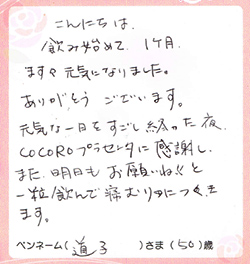 こんにちは、
飲み始めて、1ヶ月、
ます々元気になりました。
ありがとうございます。
元気な一日をすごし終った夜、
COCOROプラセンタに感謝し、
また、明日もお願いね!!と
一粒飲んで寝むりにつくき
ます。
ペンネーム(道子)さま(50)歳